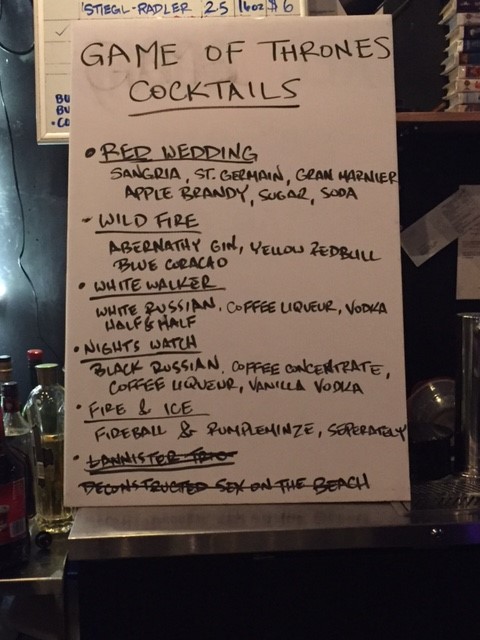 STIEGL-RADLER 2.5 16oz $6
GAME OF THRONES
COCKTAILS
• RED WEDDING
SANGRIA, ST. GERMAIN, GRAN MARNIER
APPLE BRANDY, SUGAR, SODA
- WILD FIRE
ABERNATHY GIN, YELLOW REDBULL
BLUE CURACAO
• WHITE WALKER
WHITE RUSSIAN. COFFEE LIQUEUR, VODKA
HALF & HALF
• NIGHTS WATCH
BLACK RUSSIAN. COFFEE CONCENTRATE,
COFFEE LIQUEUR, VANILLA VODKA
• FIRE & ICE
FIREBALL & RUMPLEMINZE, SEPERATELY
• LANNISTER
DECONSTRUCTED SEX ON THE BEACH